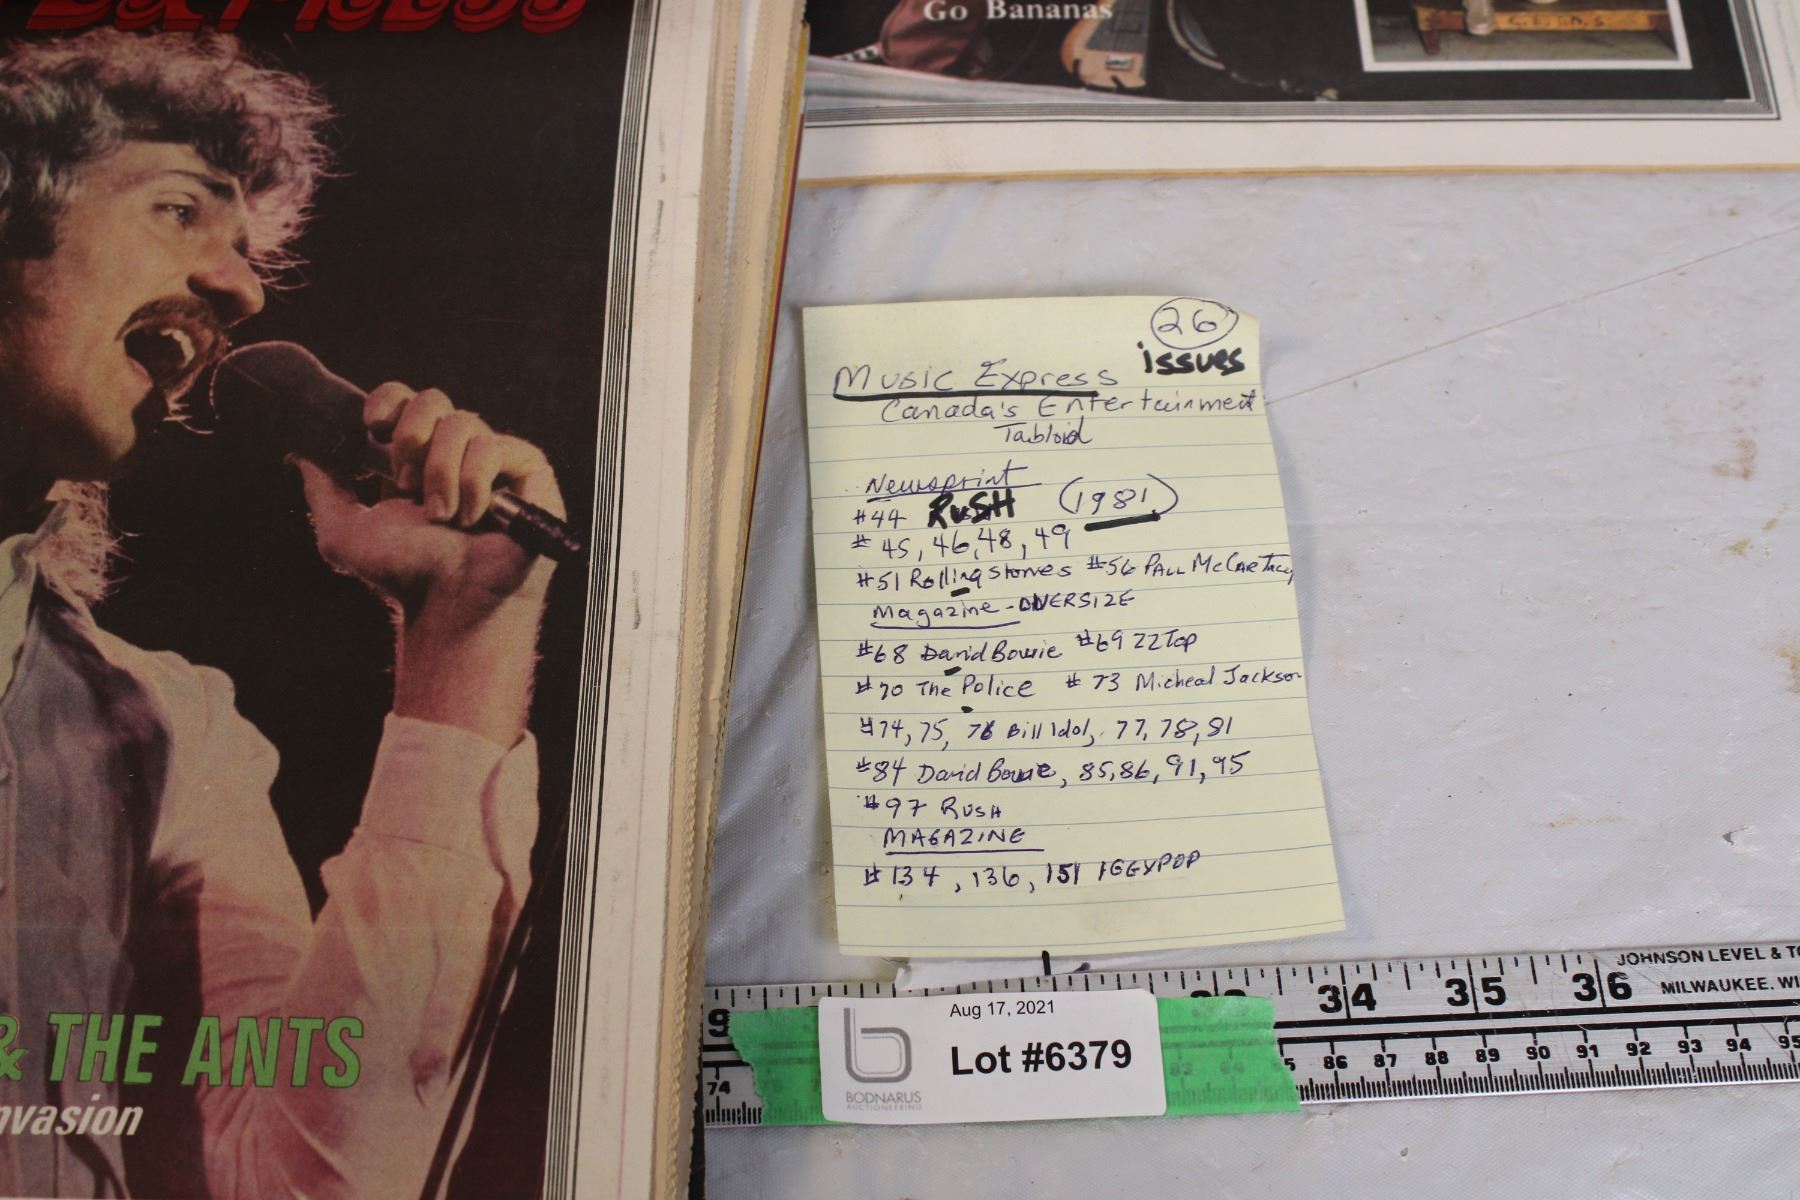 Express
Go Bananas
& THE ANTS
nvasion
26
issues
Music Express
Canada's Entertainment
Tabloid
Newsprint
#44 RUSH (1981)
# 45, 46, 48, 49
#51 Rolling Stones #56 PAUL McCartney
Magazine - OVERSIZE
#68 David Bowie #69 ZZ Top
#70 The Police # 73 Micheal Jackson
#74, 75, 76 Bill Idol, 77, 78, 81
#84 David Bowie, 85, 86, 91, 95
#97 RUSH
MAGAZINE
#134, 136, 151 IGGY POP
JOHNSON LEVEL & TO
MILWAUKEE, WI
34 35 36
86 87 88 89 90 91 92 93 94 95
74
Aug 17, 2021
Lot #6379
BODNARUS
AUCTIONEERING